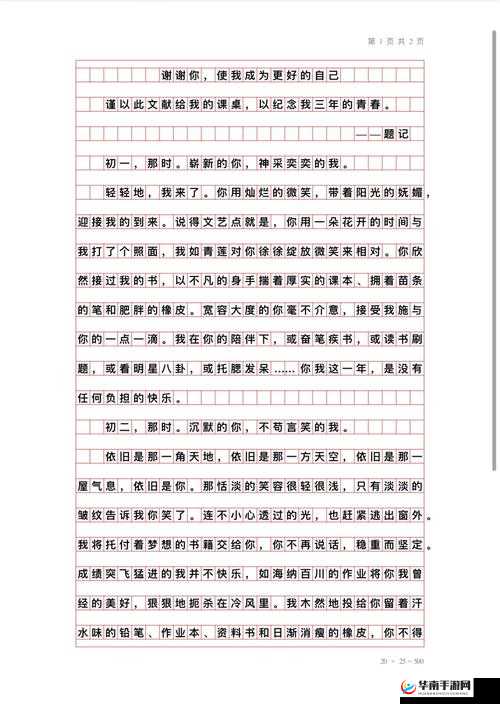 第 1 页 共 2 页
谢谢你，使我成为更好的自己
谨以此文献给我的课桌，以纪念我三年的青春。
——题记
初一，那时。崭新的你，神采奕奕的我。
轻轻地，我来了。你用灿烂的微笑，带着阳光的妩媚，
迎接我的到来。说得文艺点就是，你用一朵花开的时间与
我打了个照面，我如青莲对你徐徐绽放微笑来相对。你欣
然接过我的书，以不凡的身手揣着厚实的课本、拥着苗条
的笔和肥胖的橡皮。宽容大度的你毫不介意，接受我施与
你的一点一滴。我在你的陪伴下，或奋笔疾书，或读书刷
题，或看明星八卦，或托腮发呆……你我这一年，是没有
任何负担的快乐。
初二，那时。沉默的你，不苟言笑的我。
依旧是那一角天地，依旧是那一方天空，依旧是那一
屋气息，依旧是你。那恬淡的笑容很轻很浅，只有淡淡的
皱纹告诉我你笑了。连不小心透过的光，也赶紧逃出窗外。
我将托付着梦想的书籍交给你，你不再说话，稳重而坚定。
成绩突飞猛进的我并不快乐，如海纳百川的作业将你我曾
经的美好，狠狠地扼杀在冷风里。我木然地投给你留着汗
水味的铅笔、作业本、资料书和日渐消瘦的橡皮，你不得
20 × 25=500
华南手游网